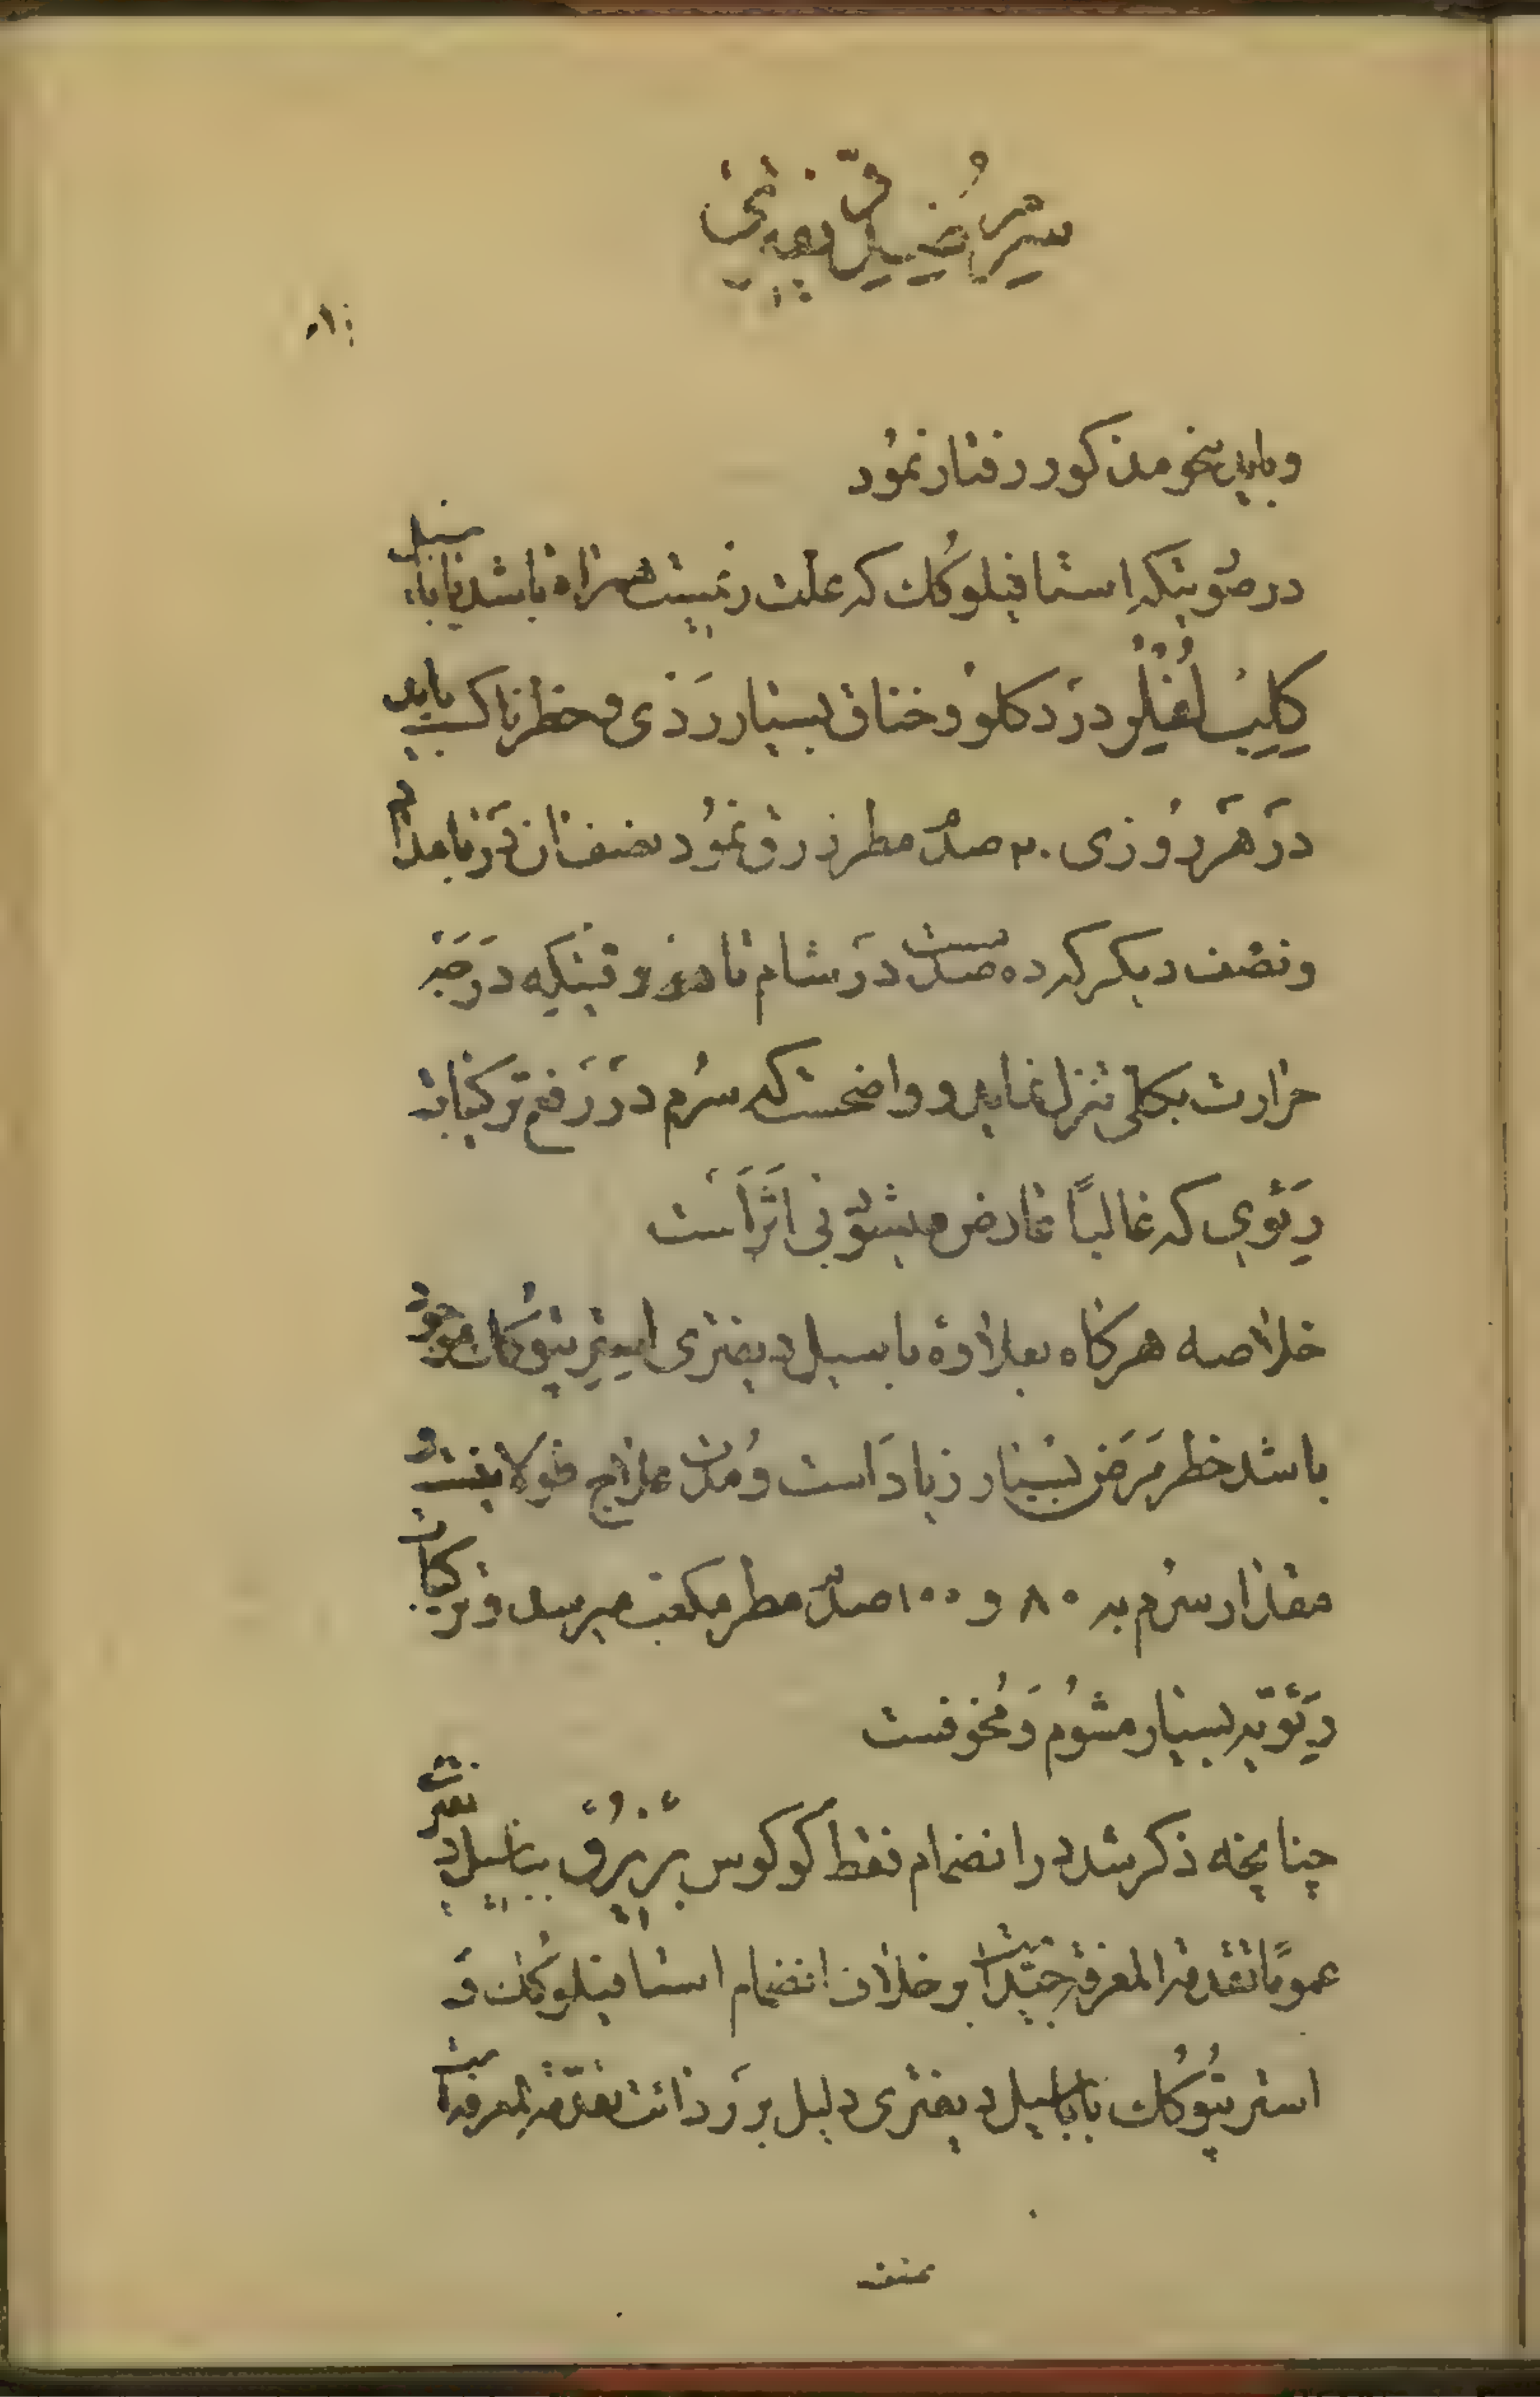 سرم ضد دیفتری
و باید بنحو مذکور رفتار نمود
در صورتیکه استافیلوکك که علت رئیست همراه باشد با باسیل
کلبس لفلر درد کلو و خناق بسیار ردی و خطرناکست باید
در هر روزی ۲۰ صدم مطر زرق نمود نصف آن در بامداد
و نصف دیکر که ده صدمست در شام تا وقتیکه درجه
حرارت بکلی تنزل نماید و واضحست که سرم در رفع ترکیبات
ریوی که غالباً عارض میشود بی اثر است
خلاصه هرکاه بعلاوه باسیل دیفتری استرپتوکك موجود
باشد خطر مرض بسیار زیاد است و مدت علاج طولانیست و
مقدار سرم به ۸۰ و ۱۰۰ صدم مطر مکعب میرسد و ترکیبات
ریویه بسیار مشوم و مخوفست
چنانچه ذکر شد در انضمام فقط کوکوس بریزو بباسیل دیفتری
عموماً تقدمة المعرفه جید است بر خلاف انضمام استافیلوکك و
استرپتوکك با باسیل دیفتری دلیل بر ردائت تقدمة المعرفه است